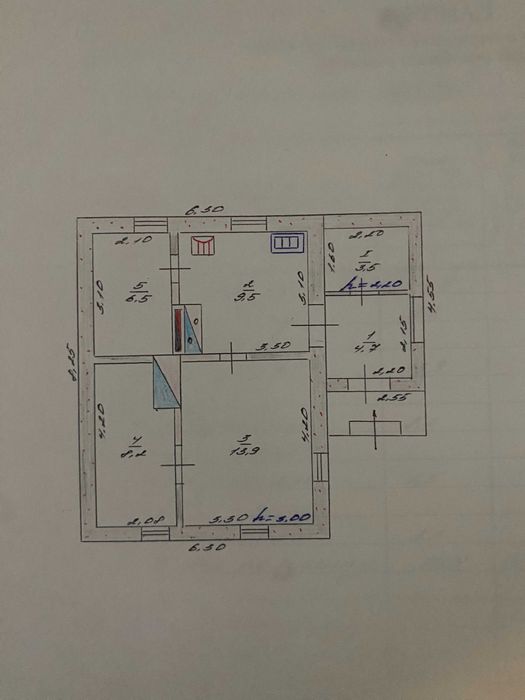 6,50
2,10
2,20
5
6,5
3,10
2
9,5
3,10
1,60
I
3,5
h=2,20
4,55
8,25
3,50
1
4,7
2,15
2,20
2,55
4,20
4
8,2
3
13,9
4,20
2,08
3,30
h=3,00
6,50